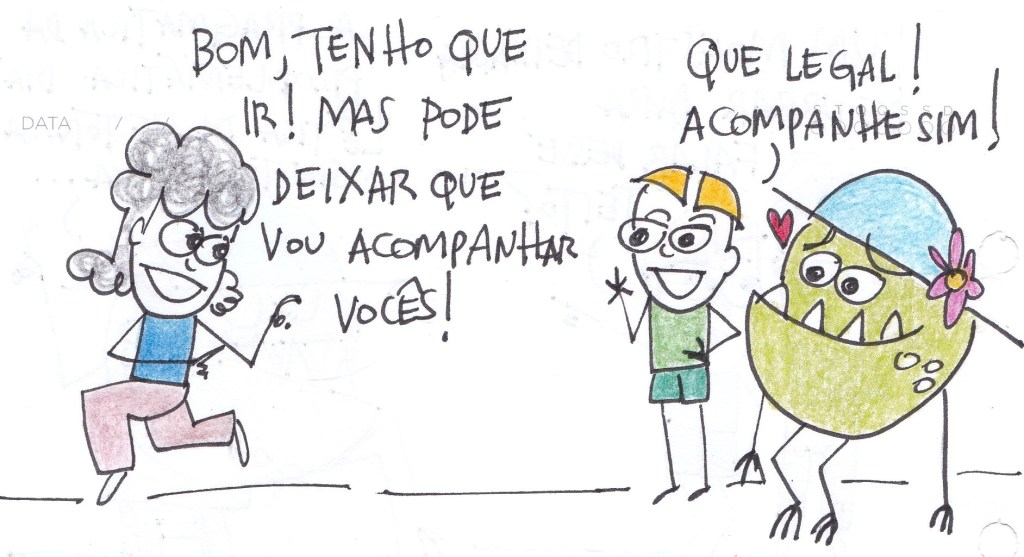 BOM, TENHO QUE
IR! MAS PODE
DEIXAR QUE
VOU ACOMPANHAR
VOCÊS!
QUE LEGAL!
ACOMPANHE SIM!
DATA / /